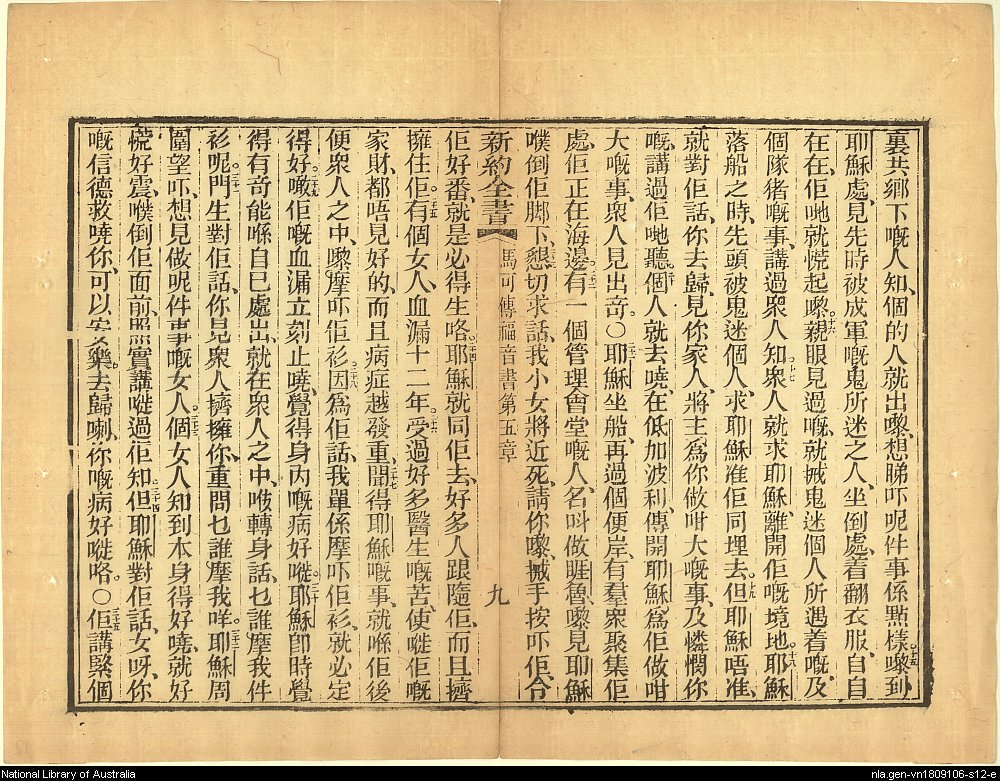 裏共鄉下嘅人知個的人就出嚟、想睇吓呢件事係點樣嚟到
耶穌處、見先時被成軍嘅鬼所迷之人、坐倒處、着翻衣服、自自
在在、佢哋就慌起嚟、親眼見過嘅、就摵鬼迷個人所遇着嘅、及
個隊猪嘅事、講過衆人知、衆人就求耶穌離開佢嘅境地、耶穌
落船之時、先頭被鬼迷個人、求耶穌准佢同埋去、但耶穌唔准、
就對佢話、你去歸見你家人、將主爲你做咁大嘅事、及憐憫你
嘅、講過佢哋聽、個人就去嘵、在低加波利、傳開耶穌爲佢做咁
大嘅事、衆人見出奇。〇耶穌坐船、再過個便岸、有羣衆聚集佢
處、佢正在海邊、有一個管理會堂嘅人、名呌做睚魯、嚟見耶穌
㗖倒佢脚下、懇切求話、我小女將近死、請你嚟、摵手按吓佢、令
新約全書 馬可傳福音書第五章 九
佢好番、就是必得生咯、耶穌就同佢去、好多人跟隨佢、而且擠
擁住佢、有個女人、血漏十二年、受過好多醫生嘅苦、使嘥佢嘅
家財、都唔見好的、而且病症越發重、聞得耶穌嘅事、就喺佢後
便衆人之中、嚟摩吓佢衫、因爲佢話、我單係摩吓佢衫、就必定
得好噉、佢嘅血漏立刻止嘵、覺得身內嘅病好嘥、耶穌卽時覺
得有奇能喺自己處出、就在衆人之中、㕭轉身話、乜誰摩我件
衫呢、門生對佢話、你見衆人擠擁你、重問乜誰摩我咩、耶穌周
圍望吓、想見做呢件事嘅女人、個女人知到本身得好嘵、就好
慌好震、㗖倒佢面前、照實講嘥過佢知、但耶穌對佢話、女呀、你
嘅信德救嘵你、可以安樂去歸喇、你嘅病好嘥咯。〇佢講緊個
National Library of Australia
nla.gen-vn1809106-s12-e